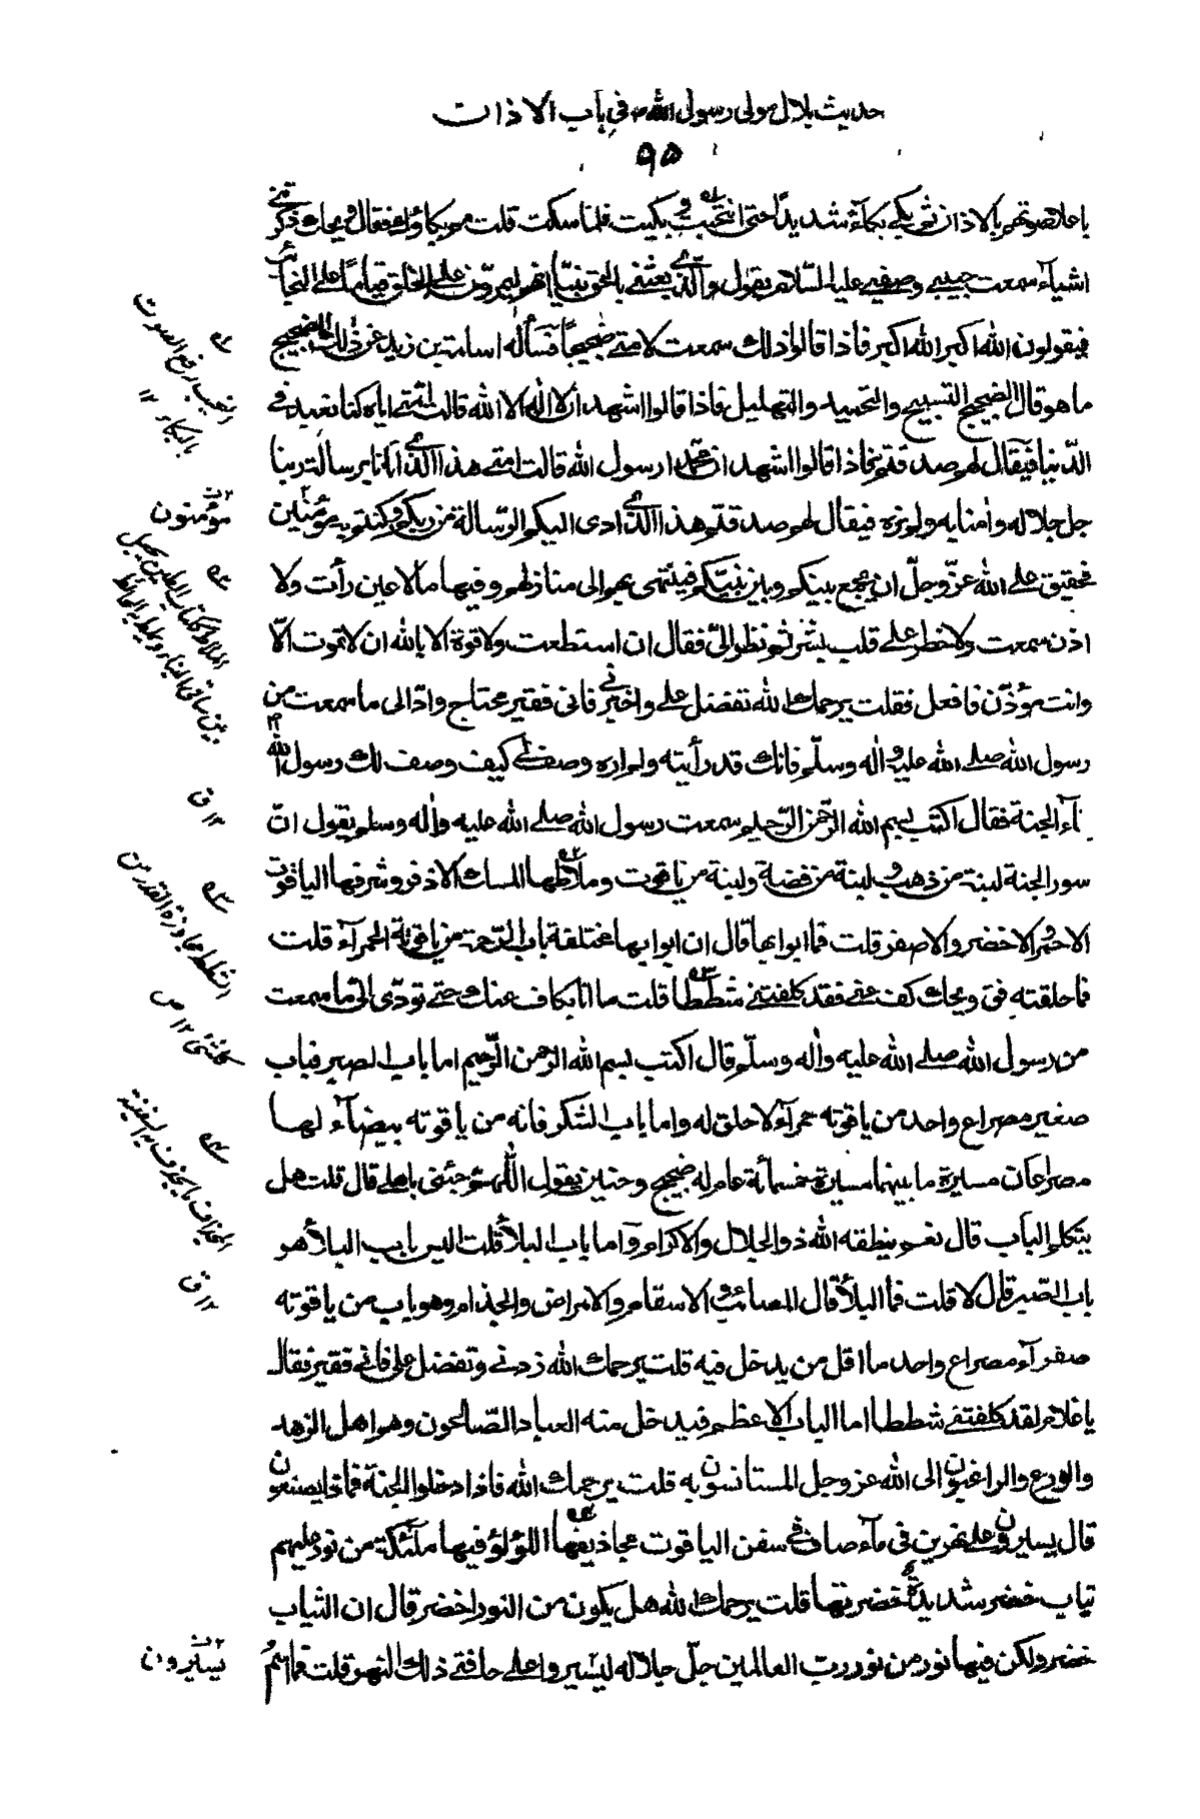 حديث بلال مولى رسول الله ص في باب الاذان
٩٥
باعلا صوتهم بالاذان ثم بكى بكاء شديدا حتى انتحب وبكيت فلما سكت قلت مم بكاؤك فقال ويحك ذكرتني
اشياء سمعت حبيبي وصفيي عليه السلام يقول والذي بعثني بالحق نبيا انهم ليمرون على الخلق قياما على النجائب
فيقولون الله اكبر الله اكبر فاذا قالوا ذلك سمعت لامتي ضجيجا فسأله اسامة بن زيد عن ذلك الضجيج
ما هو قال الضجيج التسبيح والتحميد والتهليل فاذا قالوا اشهد ان لا اله الا الله قالت امتي اياه كنا نعبد في
الدنيا فيقال لهم صدقتم فاذا قالوا اشهد ان محمدا رسول الله قالت امتي هذا الذي اتانا برسالة ربنا
جل جلاله وامنا به ولم نره فيقال لهم صدقتم هذا الذي ادى اليكم الرسالة من ربكم وكنتم به مؤمنين
فحقيق على الله عز وجل ان يجمع بينكم وبين نبيكم فينتهى بهم الى منازلهم وفيها ما لا عين رأت ولا
اذن سمعت ولا خطر على قلب بشر ثم نظر الي فقال ان استطعت ولا قوة الا بالله ان لا تموت الا
وانت مؤذن فافعل فقلت يرحمك الله تفضل علي واخبرني فاني فقير محتاج واد الي ما سمعت من
رسول الله صلى الله عليه واله وسلم فانك قد رأيته ولم اره وصف لي كيف وصف لك رسول الله
بناء الجنة فقال اكتب بسم الله الرحمن الرحيم سمعت رسول الله صلى الله عليه واله وسلم يقول ان
سور الجنة لبنة من ذهب ولبنة من فضة ولبنة من ياقوت وملاطها المسك الاذفر وشرفها الياقوت
الاحمر والاخضر والاصفر قلت فما ابوابها قال ان ابوابها مختلفة باب الرحمة من ياقوتة حمراء قلت
فما حلقته فق ويحك كف عني فقد كلفتني شططا قلت ما انا بكاف عنك حتى تؤدي الي ما سمعت
من رسول الله صلى الله عليه واله وسلم قال اكتب بسم الله الرحمن الرحيم اما باب الصبر فباب
صغير مصراع واحد من ياقوته حمراء لا حلق له واما باب الشكر فانه من ياقوته بيضاء لها
مصراعان مسيرة ما بينهما مسيرة خمسمائة عام له ضجيج وحنين يقول اللهم جئني باهلي قال قلت هل
يتكلم الباب قال نعم ينطقه الله ذو الجلال والاكرام واما باب البلأ قلت اليس باب البلأ هو
باب الصبر قال لا قلت فما البلأ قال المصائب والاسقام والامراض والجذام وهو باب من ياقوته
صفرآء مصراع واحد ما اقل من يدخل فيه قلت يرحمك الله زدني وتفضل علي فاني فقير فقال
يا غلام لقد كلفتني شططا اما الباب الاعظم فيدخل منه العباد الصالحون وهم اهل الزهد
والورع والراغبون الى الله عز وجل المستانسون به قلت يرحمك الله فاذا دخلوا الجنة فماذا يصنعون
قال يسيرون على نهرين في مآء صاف في سفن الياقوت مجاذيفها اللؤلؤ فيها ملئكة من نور عليهم
ثياب خضر شديدة خضرتها قلت يرحمك الله هل يكون من النور اخضر قال ان الثياب
خضر ولكن فيها نور من نور رب العالمين جل جلاله ليسيروا على حافتي ذلك النهر قلت فما اسم
النحيب رفع الصوت
بالبكاء ١٢
مؤمنون
١٢ ق
١٢ ص
١٢ ق
يسيرون